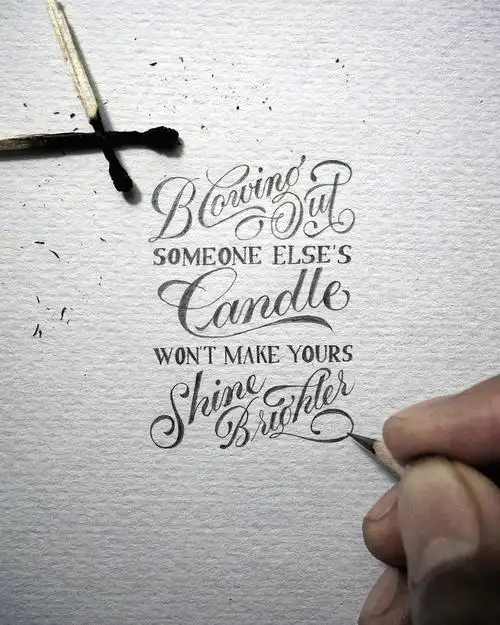 Blowing Out
SOMEONE ELSE'S
Candle
WON'T MAKE YOURS
Shine
Brighter